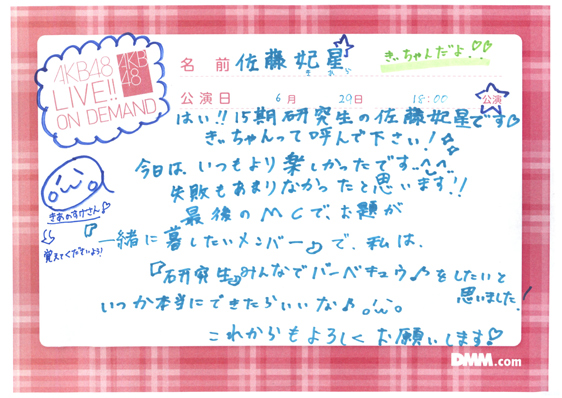 AKB48
LIVE!!
ON DEMAND
AKB
48
名前 佐藤妃星
きあら
きぃちゃんだよ!♡♡
公演日 6月 29日 18:00 公演
はい!!15期研究生の佐藤妃星です♡
きぃちゃんって呼んで下さい!
今日は、いつもより楽しかったです
失敗もあまりなかったと思います!!
最後のMCで、お題が
『一緒に暮したいメンバー』で、私は、
『研究生』みんなでバーベキュウ♪をしたいと
思いました!
いつか本当にできたらいいな♪
これからもよろしくお願いします♡
きあのすけさん♪
覚えてくださいよう!
DMM.com